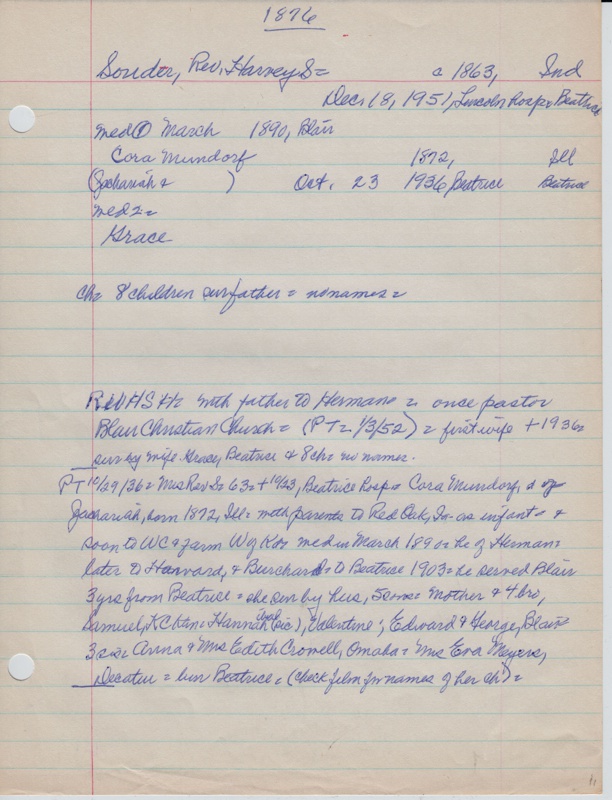 1876
Souder, Rev. Harvey S= c 1863, Ind
Dec. 18, 1951, Lincoln Hosp= Beatrice
med① March 1890, Blair
Cora Mundorf 1872, Ill
(Zachariah & ) Oct. 23 1936, Beatrice Beatrice
med 2=
Grace
ch= 8 children sur father = no names =
Rev HS H= with father to Herman = once pastor
Blair Christian Church = (PT= 1/3/52) = first wife + 1936=
sur by wife Grace, Beatrice & 8 ch= no names.
PT 10/29/36= Mrs Rev S= 63= + 10/23, Beatrice Hosp= Cora Mundorf, d of
Zachariah, born 1872, Ill= with parents to Red Oak, Ia= as infant = &
soon to WC & farm W of K= med in March 1890= he of Herman=
later to Harvard, & Burchard= to Beatrice 1903= he served Blair
3 yrs from Beatrice = she sur by hus, 5 sons= mother & 4 bro,
Samuel, K Chan= Hannibal (sic), Valentine, Edward & George, Blair=
3 sis= Anna & Mrs Edith Crowell, Omaha= Mrs Eva Meyers,
Decatur = bur Beatrice = (check film for names of her ch) =